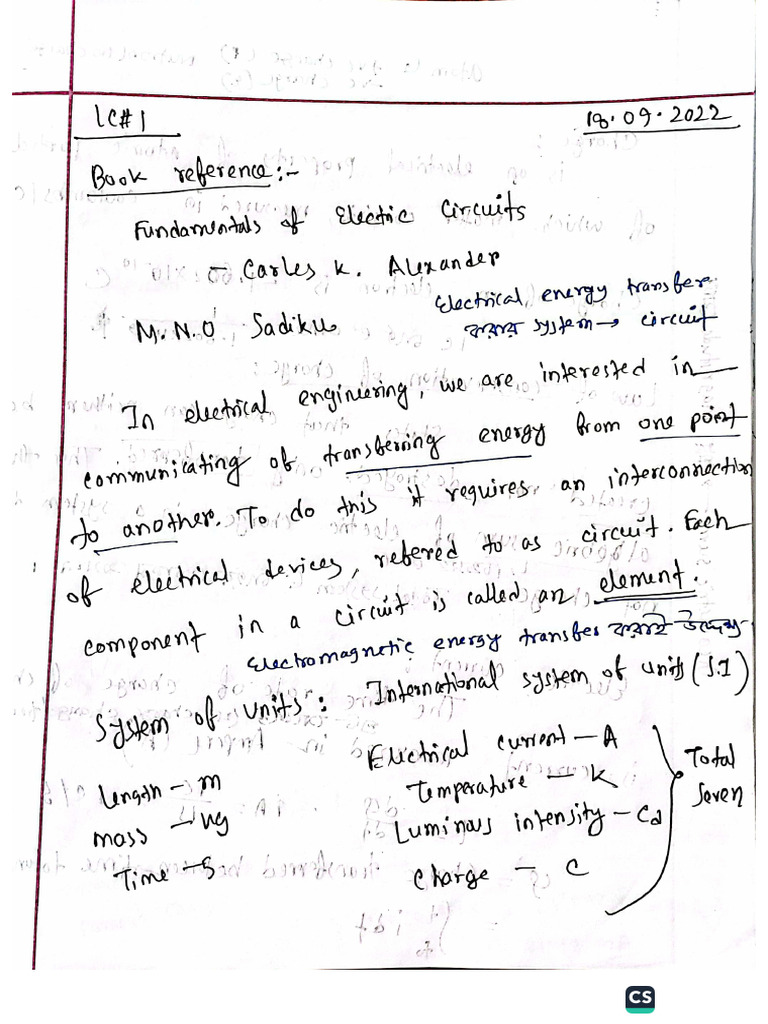 LC#1
18.09.2022
Book reference:-
Fundamentals of Electric Circuits
- Carles K. Alexander
M.N.O Sadiku
Electrical energy transfer
করার system → circuit
In electrical engineering, we are interested in
communicating of transferring energy from one point
to another. To do this it requires an interconnection
of electrical devices, refered to as circuit. Each
component in a circuit is called an element.
Electromagnetic energy transfer করাই উদ্দেশ্য
System of units: International system of units (S.I)
length - m
mass - kg
Time - S
Electrical current - A
Temperature - K
Luminous intensity - Cd
charge - C
Total
Seven
CS